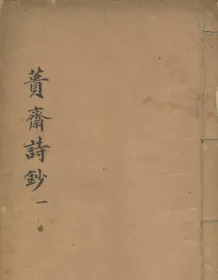 蕢齋詩鈔一